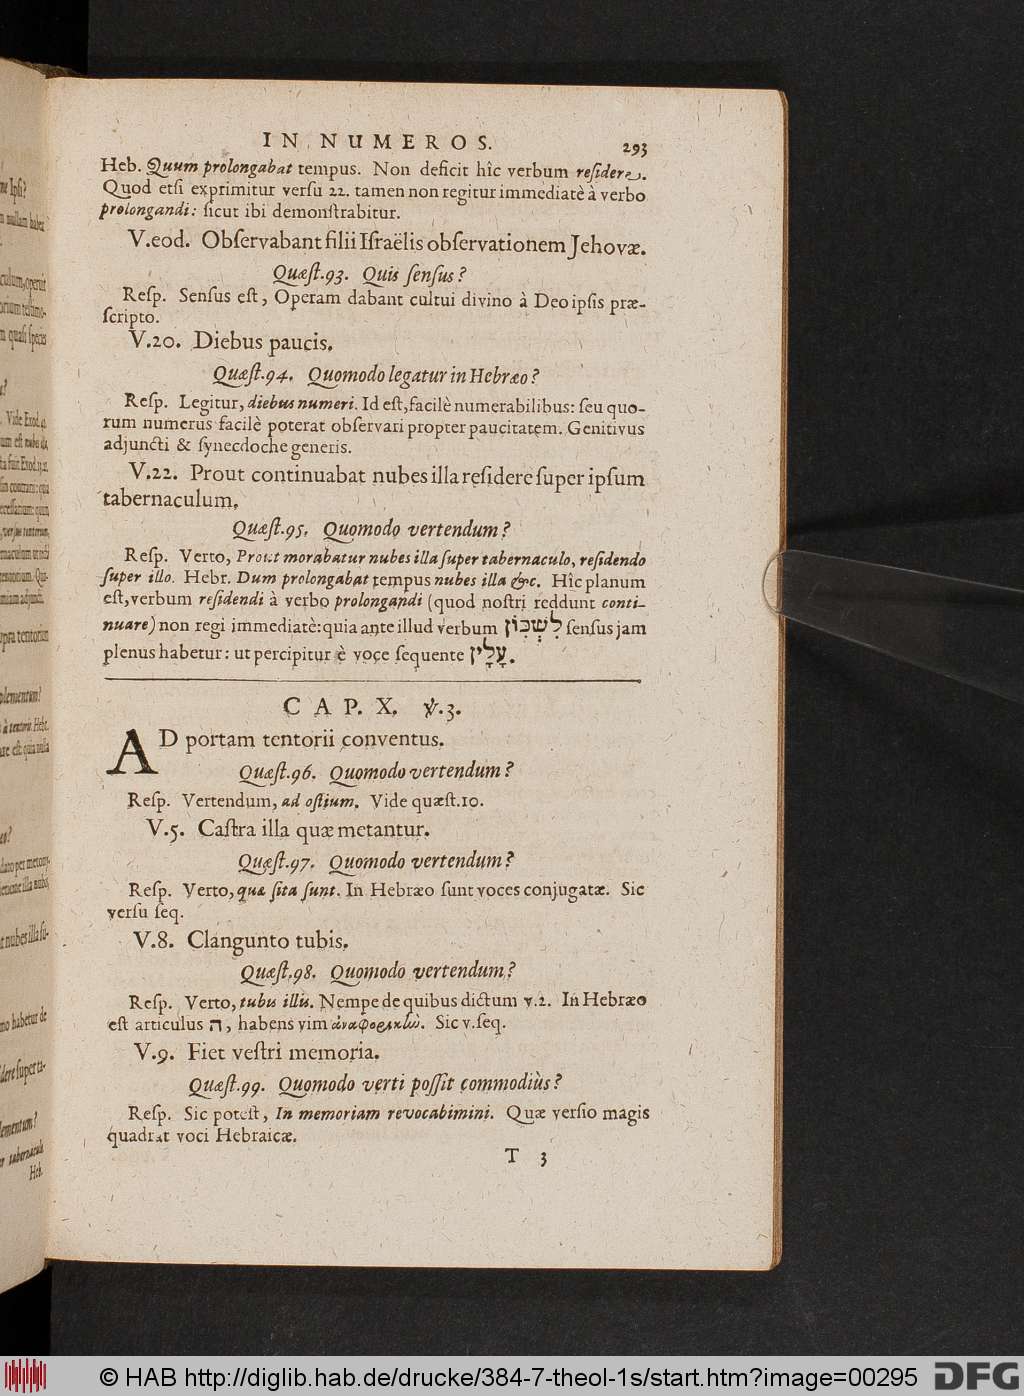 IN NUMEROS. 293
Heb. Quum prolongabat tempus. Non deficit hîc verbum reſidere.
Quod etſi exprimitur verſu 22. tamen non regitur immediatè à verbo
prolongandi: ſicut ibi demonſtrabitur.
V.eod. Obſervabant filii Iſraëlis obſervationem Jehovæ.
Quæſt.93. Quis ſenſus?
Reſp. Senſus eſt, Operam dabant cultui divino à Deo ipſis præ-
ſcripto.
V.20. Diebus paucis.
Quæſt.94. Quomodo legatur in Hebræo?
Reſp. Legitur, diebus numeri. Id eſt, facilè numerabilibus: ſeu quo-
rum numerus facilè poterat obſervari propter paucitatem. Genitivus
adjuncti & ſynecdoche generis.
V.22. Prout continuabat nubes illa reſidere ſuper ipſum
tabernaculum.
Quæſt.95. Quomodo vertendum?
Reſp. Verto, Prout morabatur nubes illa ſuper tabernaculo, reſidendo
ſuper illo. Hebr. Dum prolongabat tempus nubes illa &c. Hîc planum
eſt, verbum reſidendi à verbo prolongandi (quod noſtri reddunt conti-
nuare) non regi immediatè: quia ante illud verbum לִשְׁכּוֹן ſenſus jam
plenus habetur: ut percipitur è voce ſequente עָלָיו.
CAP. X. ℣.3.
AD portam tentorii conventus.
Quæſt.96. Quomodo vertendum?
Reſp. Vertendum, ad oſtium. Vide quæſt.10.
V.5. Caſtra illa quæ metantur.
Quæſt.97. Quomodo vertendum?
Reſp. Verto, quæ ſita ſunt. In Hebræo ſunt voces conjugatæ. Sic
verſu ſeq.
V.8. Clangunto tubis.
Quæſt.98. Quomodo vertendum?
Reſp. Verto, tubis illis. Nempe de quibus dictum v.2. In Hebræo
eſt articulus ה, habens vim ἀναφορικὼ. Sic v.ſeq.
V.9. Fiet veſtri memoria.
Quæſt.99. Quomodo verti poſſit commodiùs?
Reſp. Sic poteſt, In memoriam revocabimini. Quæ verſio magis
quadrat voci Hebraicæ.
T 3
© HAB http://diglib.hab.de/drucke/384-7-theol-1s/start.htm?image=00295
DFG